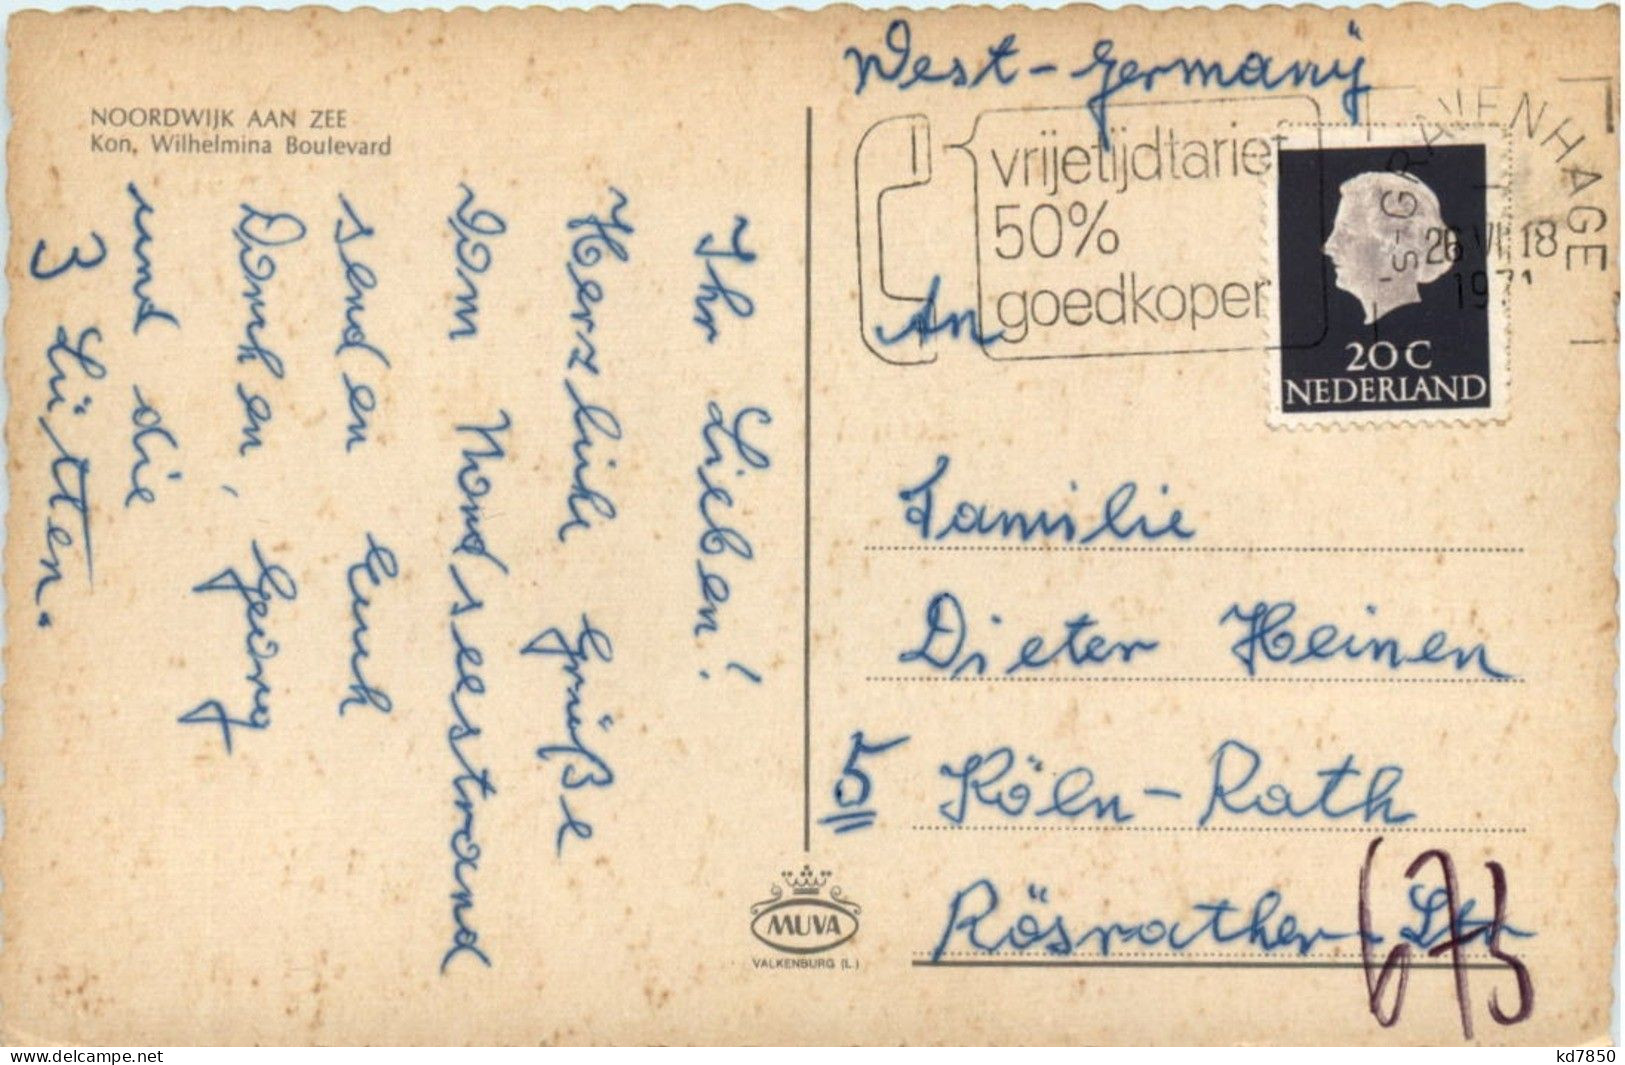 NOORDWIJK AAN ZEE
Kon. Wilhelmina Boulevard
Ihr Lieben!
Herzliche Grüße
vom Nordseestrand
senden Euch
Dorchen, Georg
und die
3 Lütten.
West-Germany
vrijetijdtarief
50%
goedkoper
'S-GRAVENHAGE
26 VII 18
1971
20 C
NEDERLAND
An
Familie
Dieter Heinen
5 Köln-Rath
Rösrather-Str
673
MUVA
VALKENBURG (L.)
www.delcampe.net
kd7850